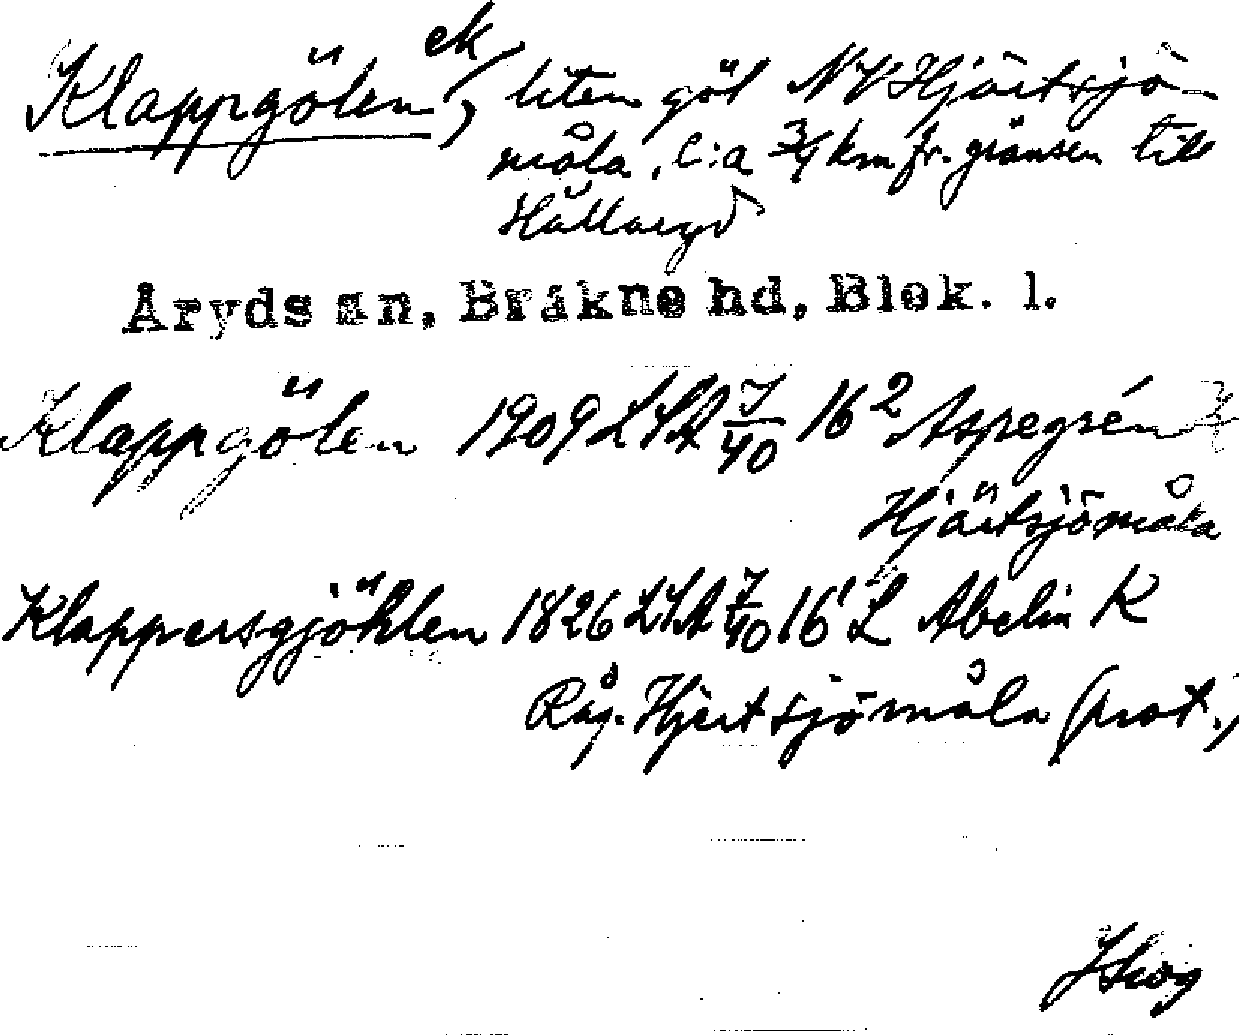 Klappgölen ek, liten göl NV Hjärtsjö-
måla, c:a 3/4 km fr. gränsen till
Hällaryd
Åryds sn, Bräkne hd, Blek. l.
Klappgölen 1909 LSA 7/40 16² Aspegrén
Hjärtsjömåla
Klappersgjöhlen 1826 LSA 7/40 16¹ L Abelin K
Råg. Hjertsjömåla (prot.)